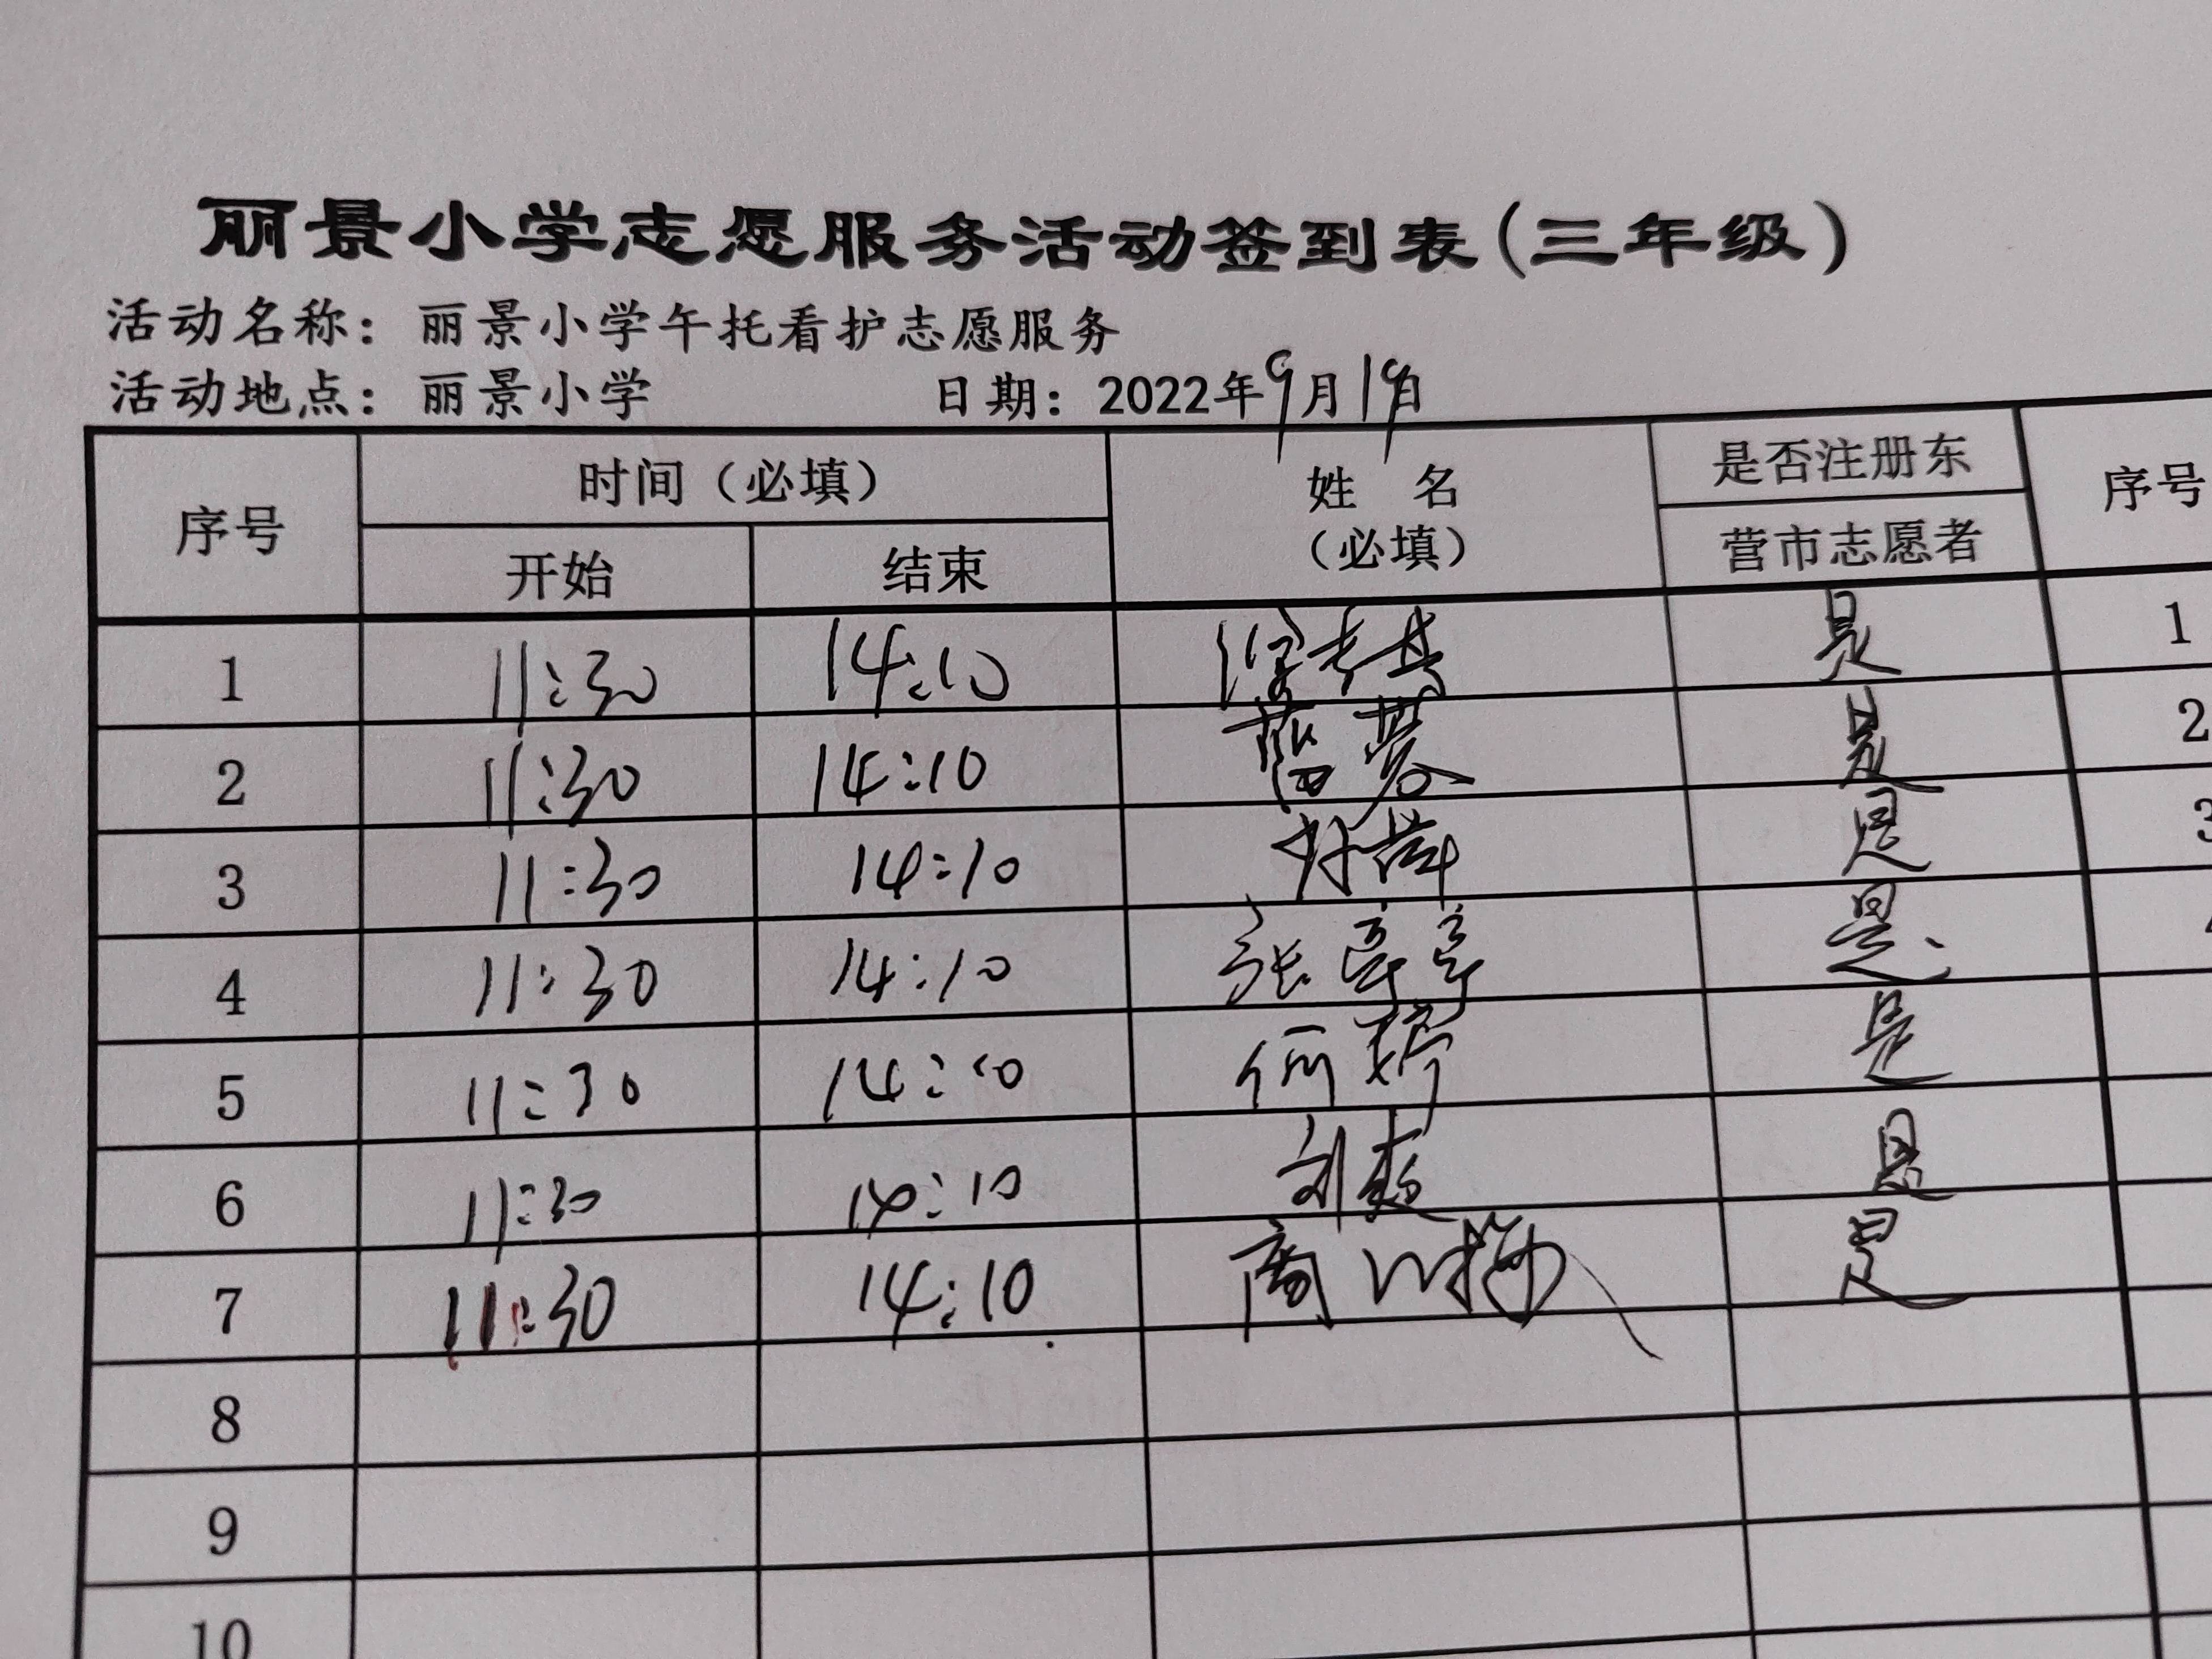 丽景小学志愿服务活动签到表(三年级)
活动名称：丽景小学午托看护志愿服务
活动地点：丽景小学 日期：2022年9月19日
序号 时间（必填） 姓 名（必填） 是否注册东营市志愿者 序号
开始 结束
1 11:30 14:10 是 1
2 11:30 14:10 是 2
3 11:30 14:10 是 3
4 11:30 14:10 张亭亭 是
5 11:30 14:10 何婷 是
6 11:30 14:10 刘超 是
7 11:30 14:10 是
8
9
10